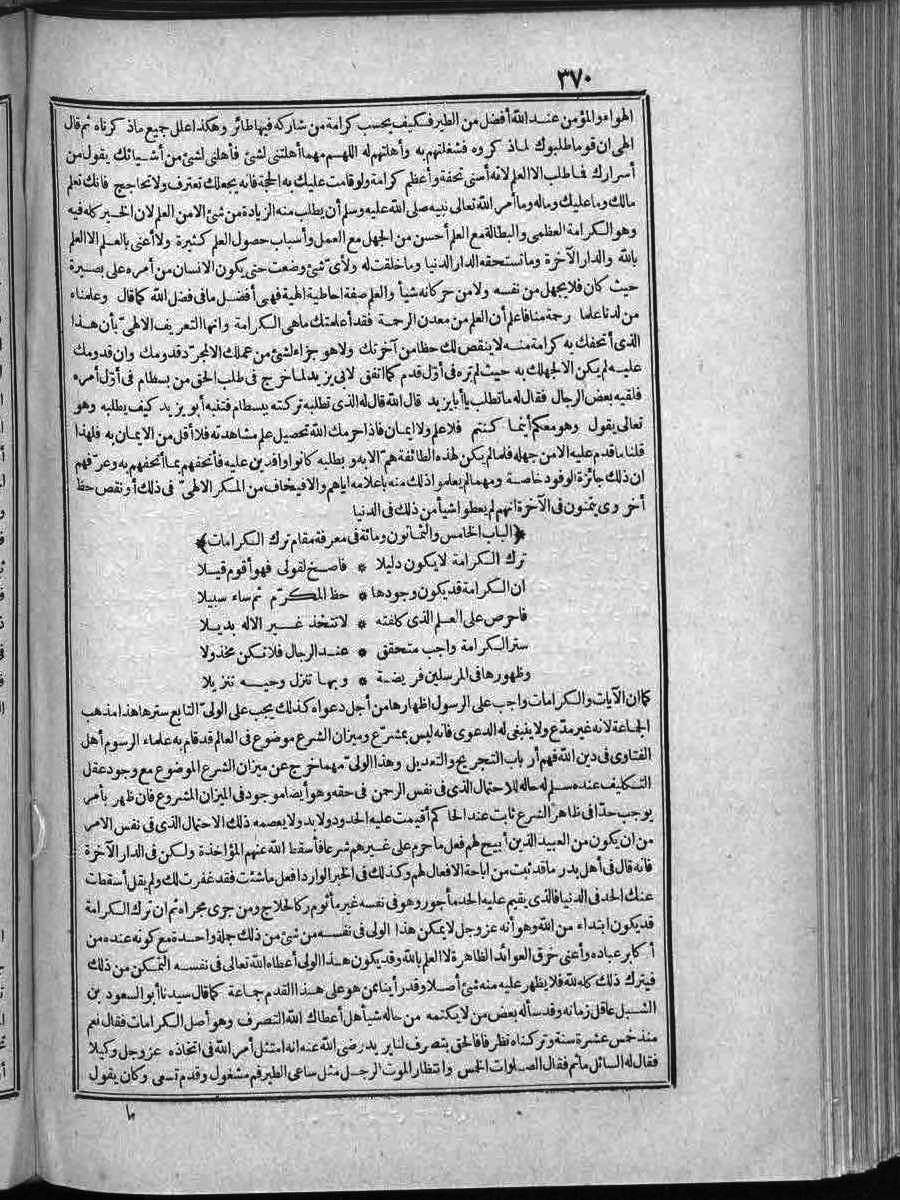 ٣٧٠
الهواء والمؤمن عند الله أفضل من الطير فكيف يحسب كرامة من شاركه فيها طائر وهكذا علل جميع ماذكرناه ثم قال
الهى ان قوما طلبوك لماذ كروه فشغلتهم به وأهلتهم له اللهم مهما أهلتنى لشئ فأهلنى لشئ من أشيائك يقول من
أسرارك فما طلب الا العلم لانه أسنى تحفة وأعظم كرامة ولو قامت عليك به الحجة فانه يجعلك تعترف ولا تحاجج فانك تعلم
مالك وما عليك وماله وما أمر الله تعالى نبيه صلى الله عليه وسلم أن يطلب منه الزيادة من شئ الامن العلم لان الخير كله فيه
وهو الكرامة العظمى والبطالة مع العلم أحسن من الجهل مع العمل وأسباب حصول العلم كثيرة ولا أعنى بالعلم الا العلم
بالله والدار الآخرة وما تستحقه الدار الدنيا وما خلقت له ولأىّ شئ وضعت حتى يكون الانسان من أمره على بصيرة
حيث كان فلا يجهل من نفسه ولا من حركاته شيأ والعلم صفة احاطية الهية فهى أفضل مافى فضل الله كما قال وعلمناه
من لدنا علما رحمة منا فاعلم أن العلم من معدن الرحمة فقد أعلمتك ماهى الكرامة وانها التعريف الالهىّ بأن هذا
الذى أتحفك به كرامة منه لا ينقص لك حظا من آخرتك ولا هو جزاء لشئ من عملك الا لمجرّد قدومك وان قدومك
عليه لم يكن الا لجهلك به حيث لم تره فى أوّل قدم كما اتفق لابى يزيد لما خرج فى طلب الحق من بسطام فى أوّل أمره
فلقيه بعض الرجال فقال له ماتطلب يا أبا يزيد قال الله قال له الذى تطلبه تركته ببسطام فتنبه أبو يزيد كيف يطلبه وهو
تعالى يقول وهو معكم أينما كنتم فلا علم ولا ايمان فاذا حرمك الله تحصيل علم مشاهدته فلا أقل من الايمان به فلهذا
قلنا ما قدم عليه الامن جهله فلما لم يكن لهذه الطائفة همّ الا به وبطلبه كانوا وافدين عليه فأتحفهم بما أتحفهم به وعرّفهم
ان ذلك جائزة الوفود خاصة ومهما لم يعلموا ذلك منه باعلامه اياهم والا فيخاف من المكر الالهىّ فى ذلك أو نقص حظ
أخروى يتمنون فى الآخرة انهم لم يعطوا شيأ من ذلك فى الدنيا
﴿الباب الخامس والثمانون ومائة فى معرفة مقام ترك الكرامات﴾
ترك الكرامة لا يكون دليلا * فاصخ لقولى فهو أقوم قيلا
ان الكرامة قد يكون وجودها * حظ المكرّم ثم ساء سبيلا
فاحرص على العلم الذى كلفته * لا تتخذ غير الاله بديلا
ستر الكرامة واجب متحقق * عند الرجال فلا تكن مخذولا
وظهورها فى المرسلين فريضة * وبها تنزل وحيه تنزيلا
كما ان الآيات والكرامات واجب على الرسول اظهارها من أجل دعواه كذلك يجب على الولىّ التابع سترها هذا مذهب
الجماعة لانه غير مدّع ولا ينبغى له الدعوى فانه ليس بمشرّع وميزان الشرع موضوع فى العالم قد قام به علماء الرسوم أهل
الفتاوى فى دين الله فهم أرباب التجريح والتعديل وهذا الولىّ مهما خرج عن ميزان الشرع الموضوع مع وجود عقل
التكليف عنده سلم له حاله للاحتمال الذى فى نفس الرحمن فى حقه وهو أيضا موجود فى الميزان المشروع فان ظهر بأمر
يوجب حدّا فى ظاهر الشرع ثابت عند الحاكم أقيمت عليه الحدود ولا بد ولا يعصمه ذلك الاحتمال الذى فى نفس الامر
من ان يكون من العبيد الذين أبيح لهم فعل ما حرم على غيرهم شرعا فأسقط الله عنهم المؤاخذة ولكن فى الدار الآخرة
فانه قال فى أهل بدر ماقد ثبت من اباحة الافعال لهم وكذلك فى الخبر الوارد افعل ماشئت فقد غفرت لك ولم يقل أسقطت
عنك الحد فى الدنيا فالذى يقيم عليه الحد مأجور وهو فى نفسه غير مأثوم كالحلاج ومن جرى مجراه ثم ان ترك الكرامة
قد يكون ابتداء من الله وهو أنه عز وجل لا يمكن هذا الولى فى نفسه من شئ من ذلك جملة واحدة مع كونه عنده من
أكابر عباده وأعنى خرق العوائد الظاهرة لا العلم بالله وقد يكون هذا الولى أعطاه الله تعالى فى نفسه التمكن من ذلك
فيترك ذلك كله لله فلا يظهر عليه منه شئ أصلا وقد رأينا من هو على هذا القدم جماعة كما قال سيدنا أبو السعود بن
الشبل عاقل زمانه وقد سأله بعض من لا يكتمه من حاله شيأ هل أعطاك الله التصرف وهو أصل الكرامات فقال نعم
منذ خمس عشرة سنة وتركناه نظرفا فالحق يتصرف لنا يريد رضى الله عنه انه امتثل أمر الله فى اتخاذه عز وجل وكيلا
فقال له السائل ماثم فقال الصلوات الخمس وانتظار الموت الرجل مثل ساعى الطير فم مشغول وقدم تسعى وكان يقول
ما